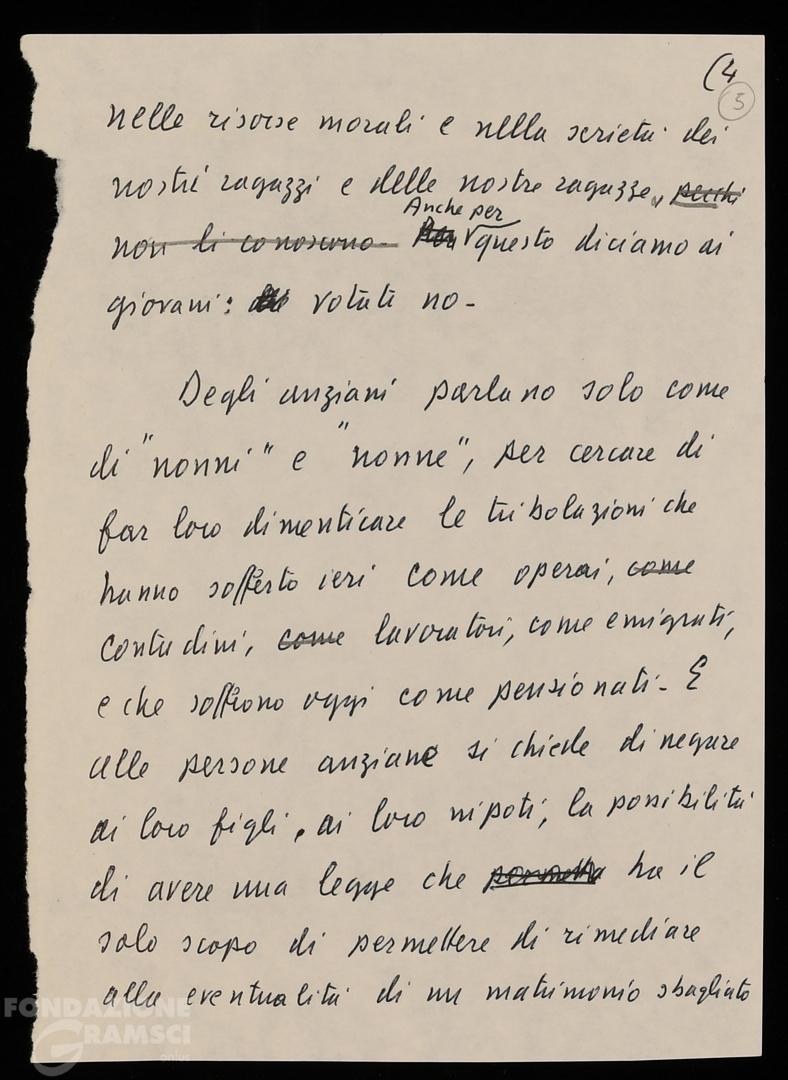 (4
5
nelle risorse morali e nella serietà dei
nostri ragazzi e delle nostre ragazze, perchè
Anche per
non li conoscono. Per questo diciamo ai
giovani: votate no -
Degli anziani parlano solo come
di "nonni" e "nonne", per cercare di
far loro dimenticare le tribolazioni che
hanno sofferto ieri come operai, come
contadini, come lavoratori, come emigrati,
e che soffrono oggi come pensionati - E
alle persone anziane si chiede di negare
ai loro figli, ai loro nipoti, la possibilità
di avere una legge che permetta ha il
solo scopo di permettere di rimediare
alla eventualità di un matrimonio sbagliato
FONDAZIONE
GRAMSCI
onlus